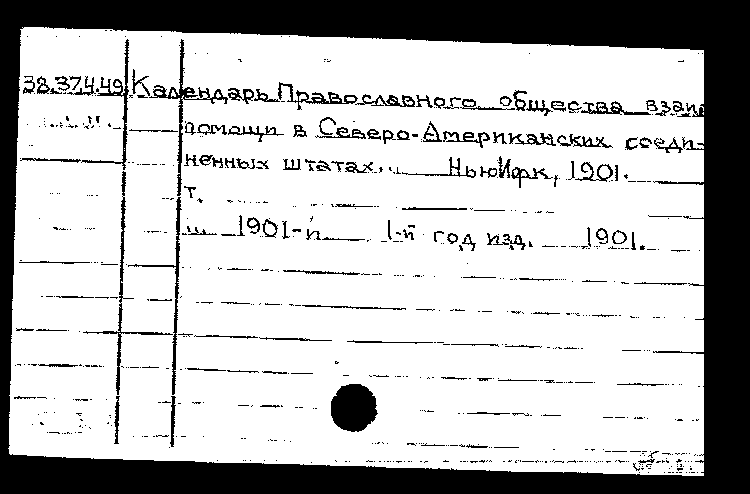 38.37.4.49 Календарь Православного общества взаи
помощи в Северо-Американских соеди-
ненных штатах... Нью Иорк, 1901.
т.
... 1901-й 1-й год изд. 1901.